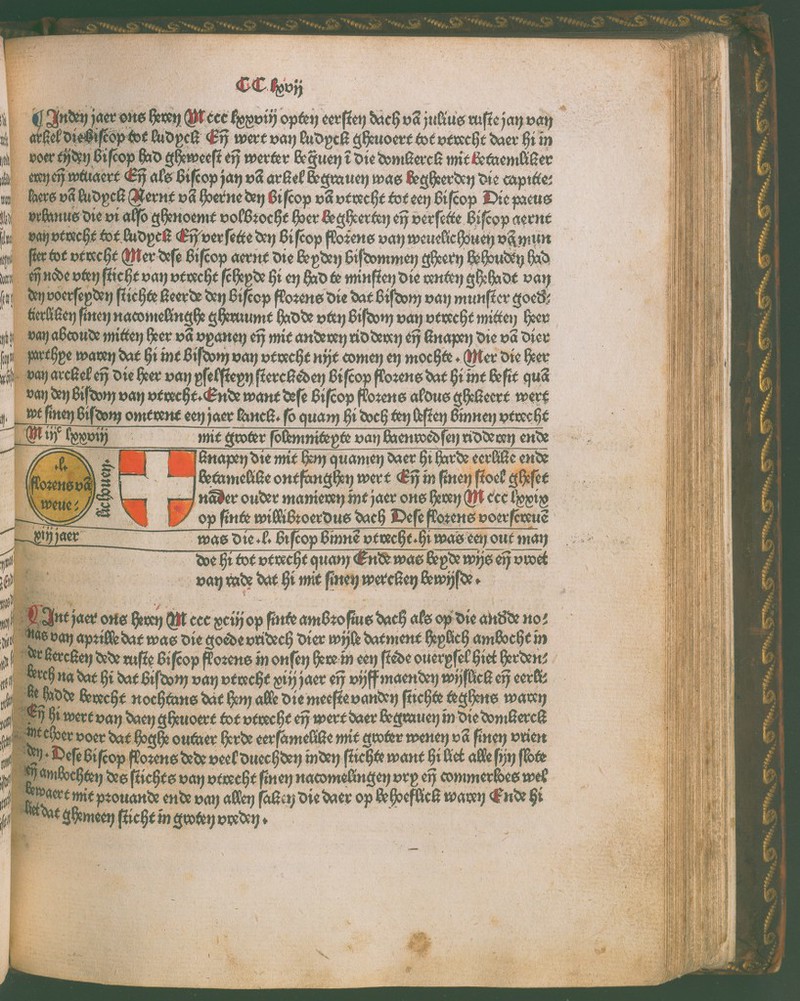 CC lxvij
¶ Inden jaer ons heren M ccc lxxviij opten eersten dach vā julius ruste jan van
arkel die biscop tot ludyck Eñ wert van ludyck gheuoert tot vtrecht daer hi in
voer tijden biscop had gheweest eñ werter begrauen ī die domkerck mit betaemliker
eren eñ wtuaert Eñ als biscop jan vā arkel begrauen was begheerden die capitte⸗
laers vā ludyck Aernt vā hoerne den biscop vā vtrecht tot een biscop Die paeus
vrbanus die vi also ghenoemt volbrocht hoer begheerten eñ versette biscop aernt
van vtrecht tot ludyck Eñ versette den biscop florens van weuelichouen vā mun
ster tot vtrecht Mer dese biscop aernt die beyden bisdommen gheern behouden had
eñ node vten sticht van vtrecht scheyde hi en had te minsten die renten ghehadt van
den voerseyden stichte keerde den biscop florens die dat bisdom van munster goed⸗
tierliken sinen nacomelinghe gheruumt hadde vten bisdom van vtrecht mitten heer
van abcoude mitten heer vā vyanen eñ mit anderen ridderen eñ knapen die vā dier
parthye waren dat hi int bisdom van vtrecht nijt comen en mochte . Mer die heer
van arckel eñ die heer van yselsteyn sterckēden biscop florens dat hi int besit quā
van den bisdom van vtrecht . Ende want dese biscop florens aldus ghekeert wert
wt sinen bisdom omtrent een jaer lanck . so quam hi doch ten lesten binnen vtrecht
M iijᶜ lxxviij
mit groter solemniteyte van baenroedsen ridderen ende
knapen die mit hem quamen daer hi harde eerlike ende
betamelike ontfanghen wert Eñ in sinen stoel gheset
nader ouder manieren int jaer ons heren M ccc lxxix
op sinte willibroerdus dach Dese florens voerscreuē
was die .l. biscop binnē vtrecht . hi was een out man
doe hi tot vtrecht quam Ende was beyde wijs eñ vroet
van rade dat hi mit sinen wercken bewijsde .
.l.
florens vā
weue⸗
lichouen
xiij jaer
¶ Int jaer ons heren M ccc xciij op sinte ambrosius dach als op die andde no⸗
nas van aprille dat was die goede vridech dier wijle datment heylich ambocht in
der kercken dede ruste biscop florens in onsen here in een stede ouerysel hiet herden⸗
berch na dat hi dat bisdom van vtrecht xiij jaer eñ vijff maenden wijslick eñ eerli⸗
ke hadde berecht nochtans dat hem alle die meeste vanden stichte teghens waren
Eñ hi wert van daen gheuoert tot vtrecht eñ wert daer begrauen in die domkerck
int choer voer dat hoghe outaer herde eersamelike mit groter wenen vā sinen vrien
den . Dese biscop florens dede veel duechden inden stichte want hi liet alle sijn slote
eñ ambochten des stichts van vtrecht sinen nacomelingen vry eñ commerloes wel
bewaert mit prouande ende van allen saken die daer op behoeflick waren Ende hi
liet dat ghemeen sticht in groten vreden .